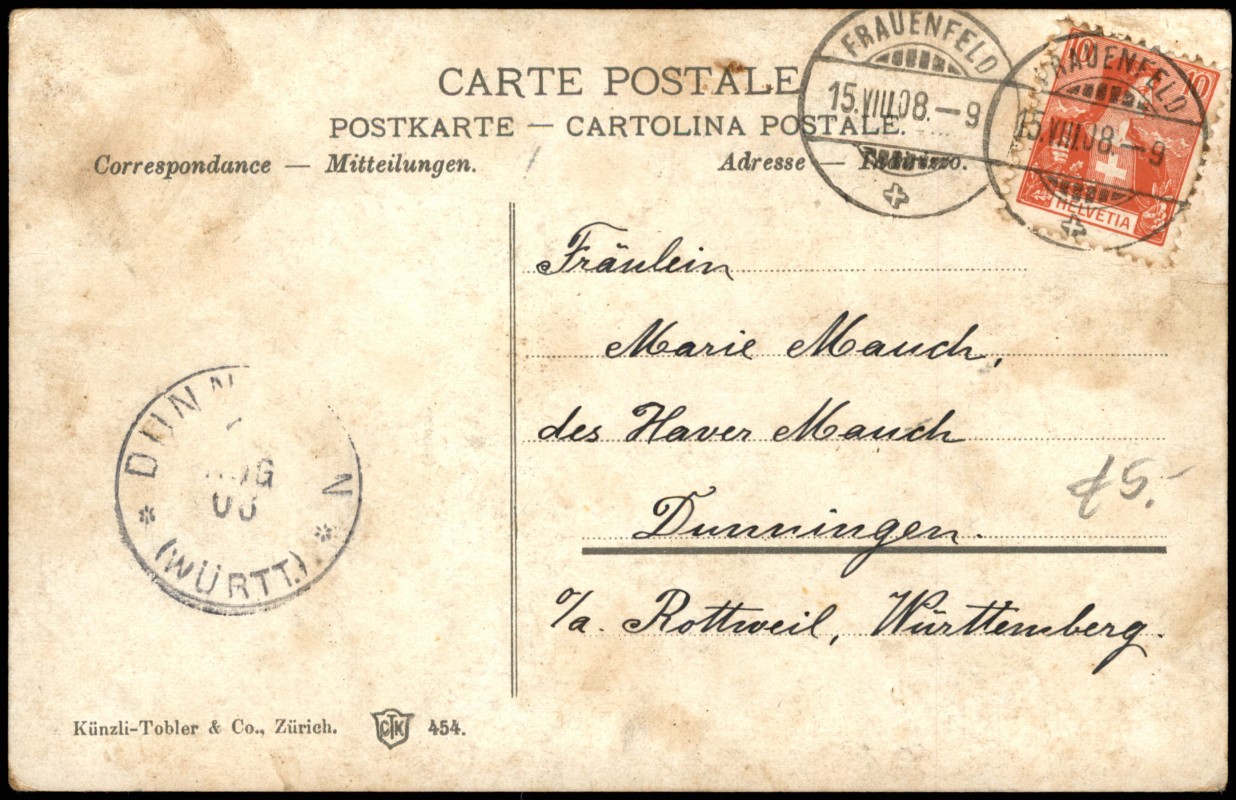 CARTE POSTALE
POSTKARTE — CARTOLINA POSTALE.
Correspondance — Mitteilungen.
Adresse — Indirizzo.
FRAUENFELD
15.VIII.08.—9
FRAUENFELD
15.VIII.08.—9
10 10
HELVETIA
Fräulein
Marie Mauch,
des Xaver Mauch
Dunningen.
o/a. Rottweil, Württemberg.
45.-
DUNN N
AUG
08
(WÜRTT.)
Künzli-Tobler & Co., Zürich.
CTK
454.